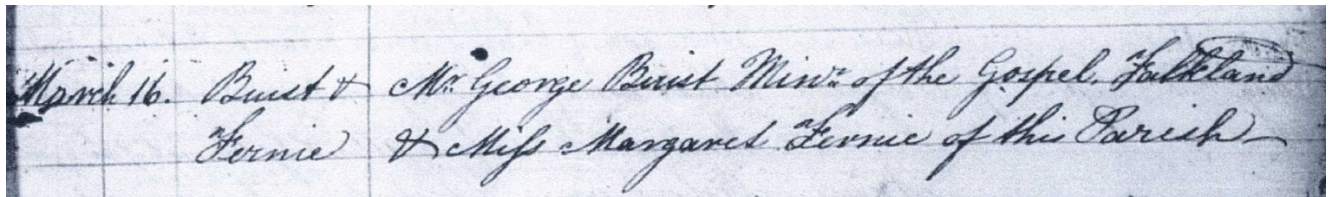 March 16. Buist & Mr. George Buist Minr. of the Gospel. Falkland
Fernie & Miss Margaret Fernie of this Parish